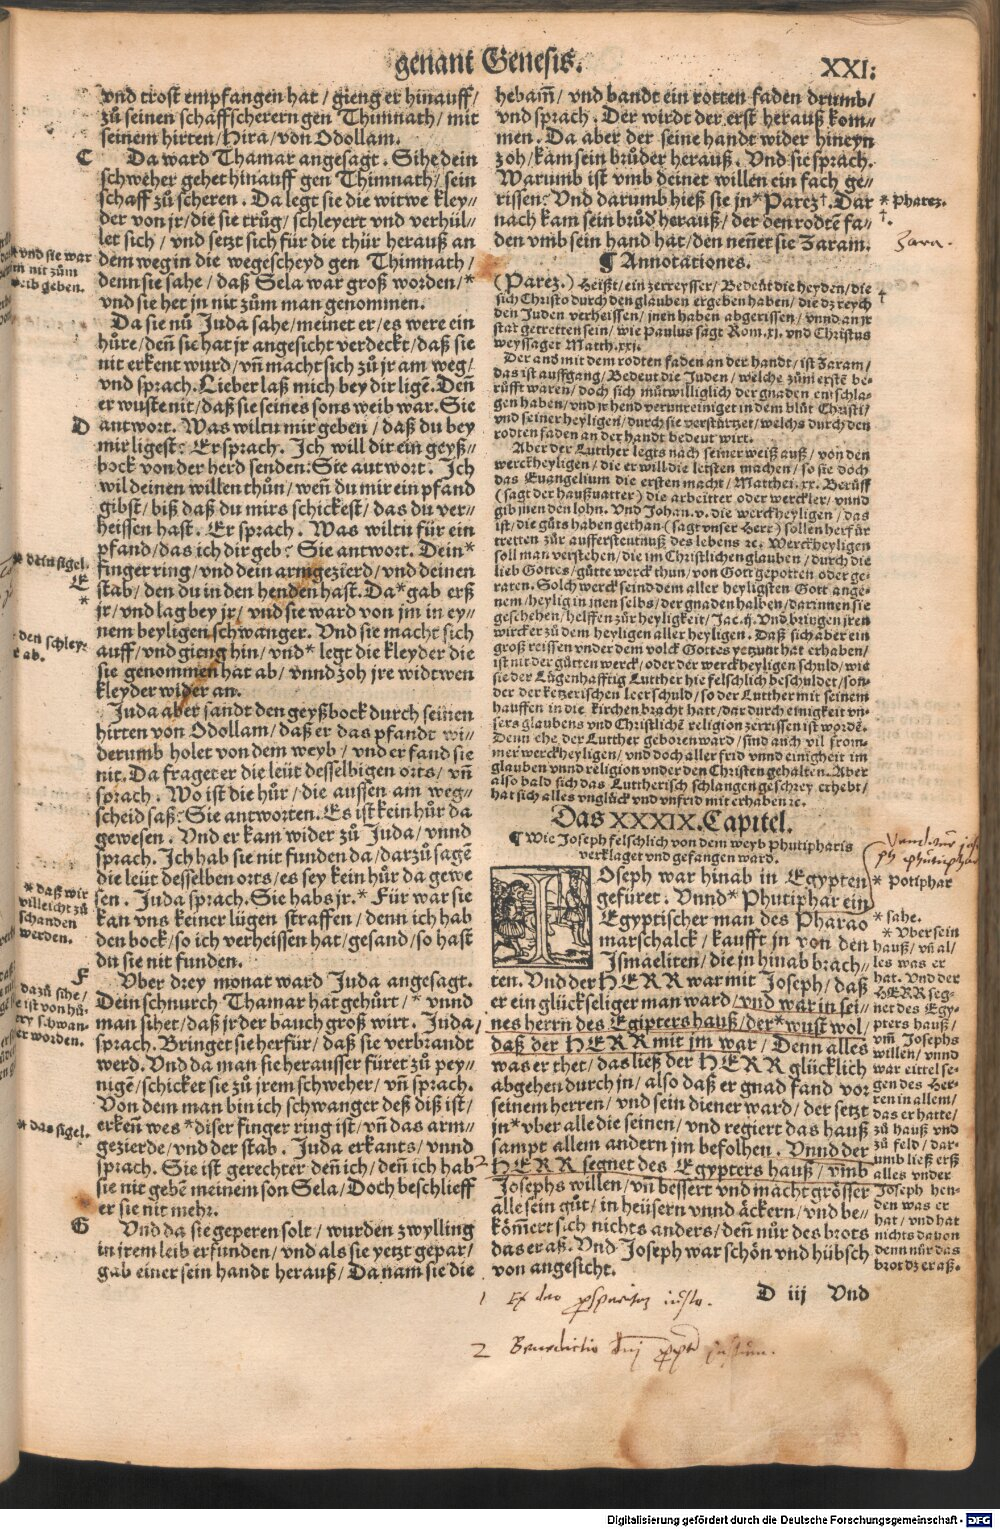 genant Genesis.
XXI:
vnd trost empfangen hat / gieng er hinauff /
zů seinen schaffscherern gen Thimnath / mit
seinem hirten / Hira / von Odollam.
C
Da ward Thamar angesagt . Sihe dein
schweher gehet hinauff gen Thimnath / sein
schaff zů scheren . Da legt sie die witwe kley⸗
der von jr / die sie trůg / schleyert vnd verhül⸗
let sich / vnd setzt sich für die thür herauß an
dem weg in die wegescheyd gen Thimnath /
denn sie sahe / daß Sela war groß worden / *
vnd sie het jn nit zům man genommen.
* vnd sie war
jm nit zům
weib geben.
Da sie nů Juda sahe / meinet er / es were ein
hůre / deñ sie hat jr angesicht verdeckt / daß sie
nit erkent wurd / vñ macht sich zů jr am weg /
vnd sprach. Lieber laß mich bey dir ligẽ. Deñ
er wuste nit / daß sie seines sons weib war. Sie
D
antwort. Was wiltu mir geben / daß du bey
mir ligest: Er sprach. Ich will dir ein geyß⸗
bock von der herd senden: Sie antwort. Ich
wil deinen willen thůn / weñ du mir ein pfand
gibst / biß daß du mirs schickest / das du ver⸗
heissen hast. Er sprach. Was wiltu für ein
pfand / das ich dir geb: Sie antwort. Dein*
finger ring / vnd dein armgezierd / vnd deinen
stab / den du in den henden hast. Da* gab erß
jr / vnd lag bey jr / vnd sie ward von jm in ey⸗
nem beyligen schwanger. Vnd sie macht sich
auff / vnd gieng hin / vnd* legt die kleyder die
sie genommen hat ab / vnnd zoh jre widtwen
kleyder wider an.
* dein sigel.
E
*
den schley⸗
r ab.
Juda aber sandt den geyßbock durch seinen
hirten von Odollam / daß er das pfandt wi⸗
derumb holet von dem weyb / vnd er fand sie
nit. Da fraget er die leüt desselbigen orts / vñ
sprach. Wo ist die hůr / die aussen am weg⸗
scheid saß: Sie antworten. Es ist kein hůr da
gewesen. Vnd er kam wider zů Juda / vnnd
sprach. Ich hab sie nit funden da / darzů sagẽ
die leüt desselben orts / es sey kein hůr da gewe
sen. Juda sprach. Sie habs jr.* Für war sie
kan vns keiner lügen straffen / denn ich hab
den bock / so ich verheissen hat / gesand / so hast
du sie nit funden.
* daß wir
villeicht zů
schanden
werden.
F
Vber drey monat ward Juda angesagt.
Dein schnurch Thamar hat gehůrt / * vnnd
man sihet / daß jr der bauch groß wirt. Juda
sprach. Bringet sie herfür / daß sie verbrandt
werd. Vnd da man sie herausser füret zů pey⸗
nigẽ / schicket sie zů jrem schweher / vñ sprach.
Von dem man bin ich schwanger deß diß ist /
erkeñ wes* diser finger ring ist / vñ das arm⸗
gezierde / vnd der stab. Juda erkants / vnnd
sprach. Sie ist gerechter deñ ich / deñ ich hab
sie nit gebẽ meinem son Sela / Doch beschlieff
er sie nit mehr.
dazů sihe /
ist von hů⸗
ry schwan⸗
er worden.
* das sigel.
G
Vnd da sie geperen solt / wurden zwylling
in jrem leib erfunden / vnd als sie yetzt gepar /
gab einer sein handt herauß / Da nam sie die
hebam̃ / vnd bandt ein rotten faden drumb /
vnd sprach. Der wirdt der erst herauß kom⸗
men. Da aber der seine handt wider hineyn
zoh / kam sein brůder herauß. Vnd sie sprach.
Warumb ist vmb deinet willen ein fach ge⸗
rissen: Vnd darumb hieß sie jn* Parez†. Dar
nach kam sein brůd herauß / der den rodtẽ fa⸗
den vmb sein hand hat / den neñet sie Zaram.
* Pharez.
†.
Zara.
¶ Annotationes.
(Parez.) Heißt / ein zerreysser / Bedeüt die heyden / die
sich Christo durch den glauben ergeben haben / die dz reych
den Juden verheissen / jnen haben abgerissen / vnnd an jr
stat getretten sein / wie Paulus sagt Rom.xj. vnd Christus
weyssaget Matth.xxj.
†
Der and mit dem rodten faden an der handt / ist Zaram /
das ist auffgang / Bedeut die Juden / welche zům erstẽ be⸗
růfft waren / doch sich můtwilliglich der gnaden entschla⸗
gen haben / vnd jr hend verunreiniget in dem blůt Christi /
vnd seiner heyligen / durch sie verstürtzet / welchs durch den
rodten faden an der handt bedeut wirt.
Aber der Lutther legts nach seiner weiß auß / von den
werckheyligen / die er will die letsten machen / so sie doch
das Euangelium die ersten macht / Matthei.xx. Berůff
(sagt der haußuatter) die arbeitter oder werckler / vnnd
gib jnen den lohn. Vnd Johan.v. die werckheyligen / das
ist / die gůts haben gethan (sagt vnser Herr) sollen herfür
tretten zůr aufferstentnuß des lebens ꝛc. Werckheyligen
soll man verstehen / die im Christlichen glauben / durch die
lieb Gottes / gůtte werck thun / von Gott gepotten oder ge⸗
raten. Solch werck seind dem aller heyligsten Gott ange⸗
nem / heylig in jnen selbs / der gnaden halben / darinnen sie
geschehen / helffen zůr heyligkeit / Jac.ij. Vnd bringen jren
wircker zů dem heyligen aller heyligen. Daß sich aber ein
groß reissen vnder dem volck Gottes yetzunt hat erhaben /
ist nit der gůtten werck / oder der werckheyligen schuld / wie
sie der Lügenhafftig Lutther hie felschlich beschuldet / son⸗
der der ketzerischen leer schuld / so der Lutther mit seinem
hauffen in die kirchen bracht hatt / dardurch einigkeit vn⸗
sers glaubens vnd Christlichẽ religion zerrissen ist wordẽ.
Denn ehe der Lutther geboren ward / sind auch vil from⸗
mer werckheyligen / vnd doch aller frid vnnd einigheit im
glauben vnnd religion vnder den Christen gehalten. Aber
also bald sich das Lutterisch schlangen geschrey erhebt /
hat sich alles vnglück vnd vnfrid mit erhaben ꝛc.
Das XXXIX. Capitel.
¶ Wie Joseph felschlich von dem weyb Phutipharis
verklaget vnd gefangen ward.
IOseph war hinab in Egypten
gefüret. Vnnd* Phutiphar ein
Egyptischer man des Pharao
marschalck / kaufft jn von den
Ismaeliten / die jn hinab brach⸗
ten. Vnd der HERR war mit Joseph / daß
er ein glückseliger man ward / vnd war in sei⸗
nes herrn des Egipters hauß / der* wust wol /
daß der HERR mit jm war / Denn alles
was er thet / das ließ der HERR glücklich
abgehen durch jn / also daß er gnad fand vor
seinem herren / vnd sein diener ward / der setzt
jn* vber alle die seinen / vnd regiert das hauß
sampt allem andern jm befolhen. Vnnd der
HERR segnet des Egypters hauß / vmb
Josephs willen / vñ bessert vnd macht grösser
alle sein gůt / in heüsern vnnd äckern / vnd be⸗
köm̃ert sich nichts anders / deñ nůr des brots
das er aß. Vnd Joseph war schön vnd hübsch
von angesicht.
* Potiphar
* sahe.
* Vber sein
hauß / vñ al /
les was er
hat. Vnd der
HERR seg⸗
net des Egy⸗
pters hauß /
vm̃ Josephs
willen / vnnd
war eittel se⸗
gen des Her⸗
ren in allem /
das er hatte /
zů hauß vnd
zů feld / dar⸗
umb ließ erß
alles vnder
Joseph hen⸗
den was er
hat / vnd hat
nichts davon
denn nůr das
brot dz er aß.
D iij Vnd
1 Ex deo
2 Benedictio
Digitalisierung gefördert durch die Deutsche Forschungsgemeinschaft - DFG